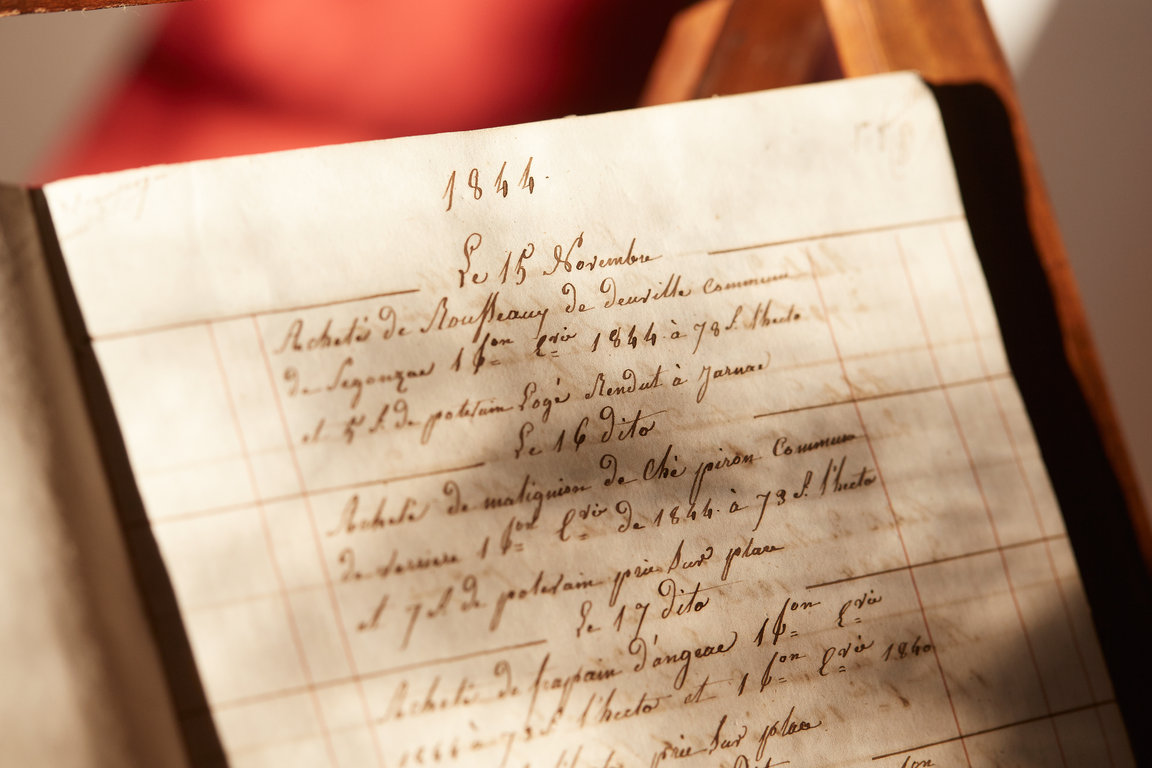 1844.
Le 15 Novembre
Acheté de Rousseaux de deuville commune
de Segonzac 1 fon Evie 1844 à 78 f. l'hecto
et 5 f. de potevain Logé Rendut à Jarnac
Le 16 dito
Acheté de matignion de Ché piron Commune
de verriere 1 fon Evie de 1844 à 73 f. l'hecto
et 7 f. de potevain prie Sur place
Le 17 dito
Acheté de frapain d'angeac 1 fon Evie
1844 à 73 f. l'hecto et 1 fon Evie 1840
prie Sur place
dito
fon